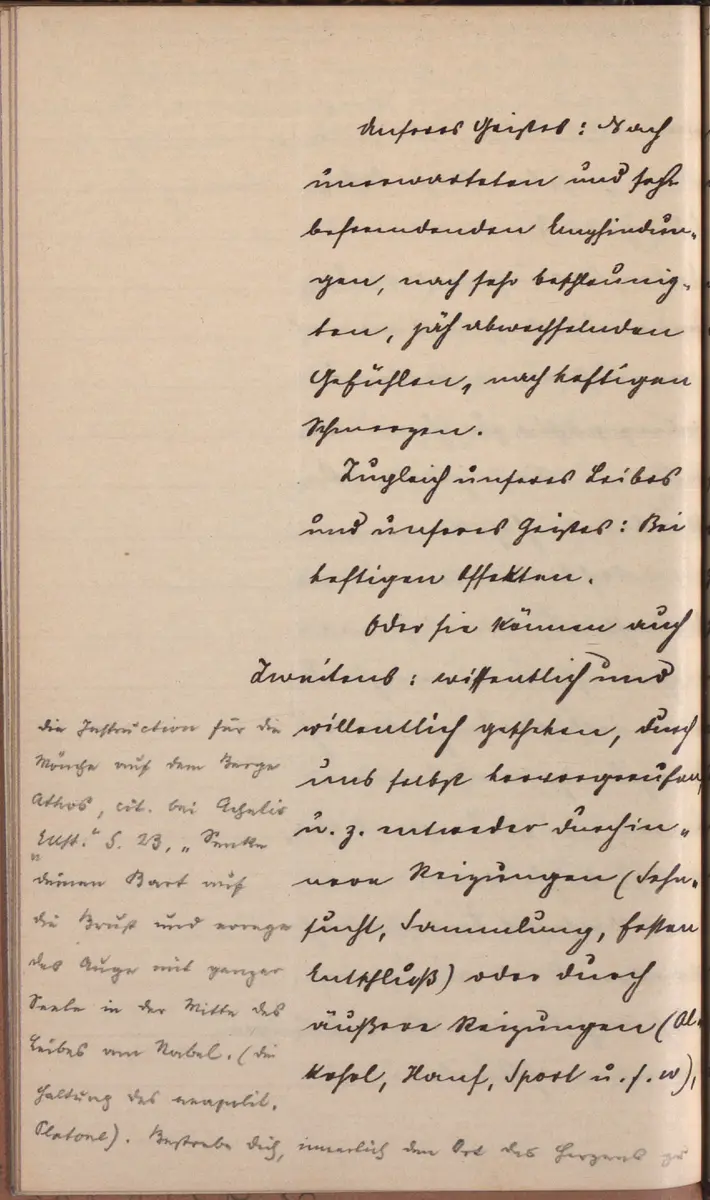 unseres Geistes: Nach
unerwarteten und sehr
befremdenden Empfindun-
gen, nach sehr beschleunig-
ten, jäh abwechselnden
Gefühlen, nach heftigen
Schmerzen.
Zugleich unseres Leibes
und unseres Geistes: Bei
heftigen Affekten.
Oder sie können auch
Zweitens: wissentlich und
willentlich geschehen, durch
uns selbst hervorgerufen,
u. z. entweder durch in-
nere Reizungen (Sehn-
sucht, Sammlung, festen
Entschluß) oder durch
äußere Reizungen (Al-
kohol, Hanf, Sport u. s. w),
die Instruction für die
Mönche auf dem Berge
Athos, cit. bei Achelis
"Ekst." S. 23, "Senke
deinen Bart auf
die Brust und errege
das Auge mit ganzer
Seele in der Mitte des
Leibes am Nabel. (die
Haltung des neapolit.
Platone). Bestrebe dich, innerlich den Ort des Herzens zu